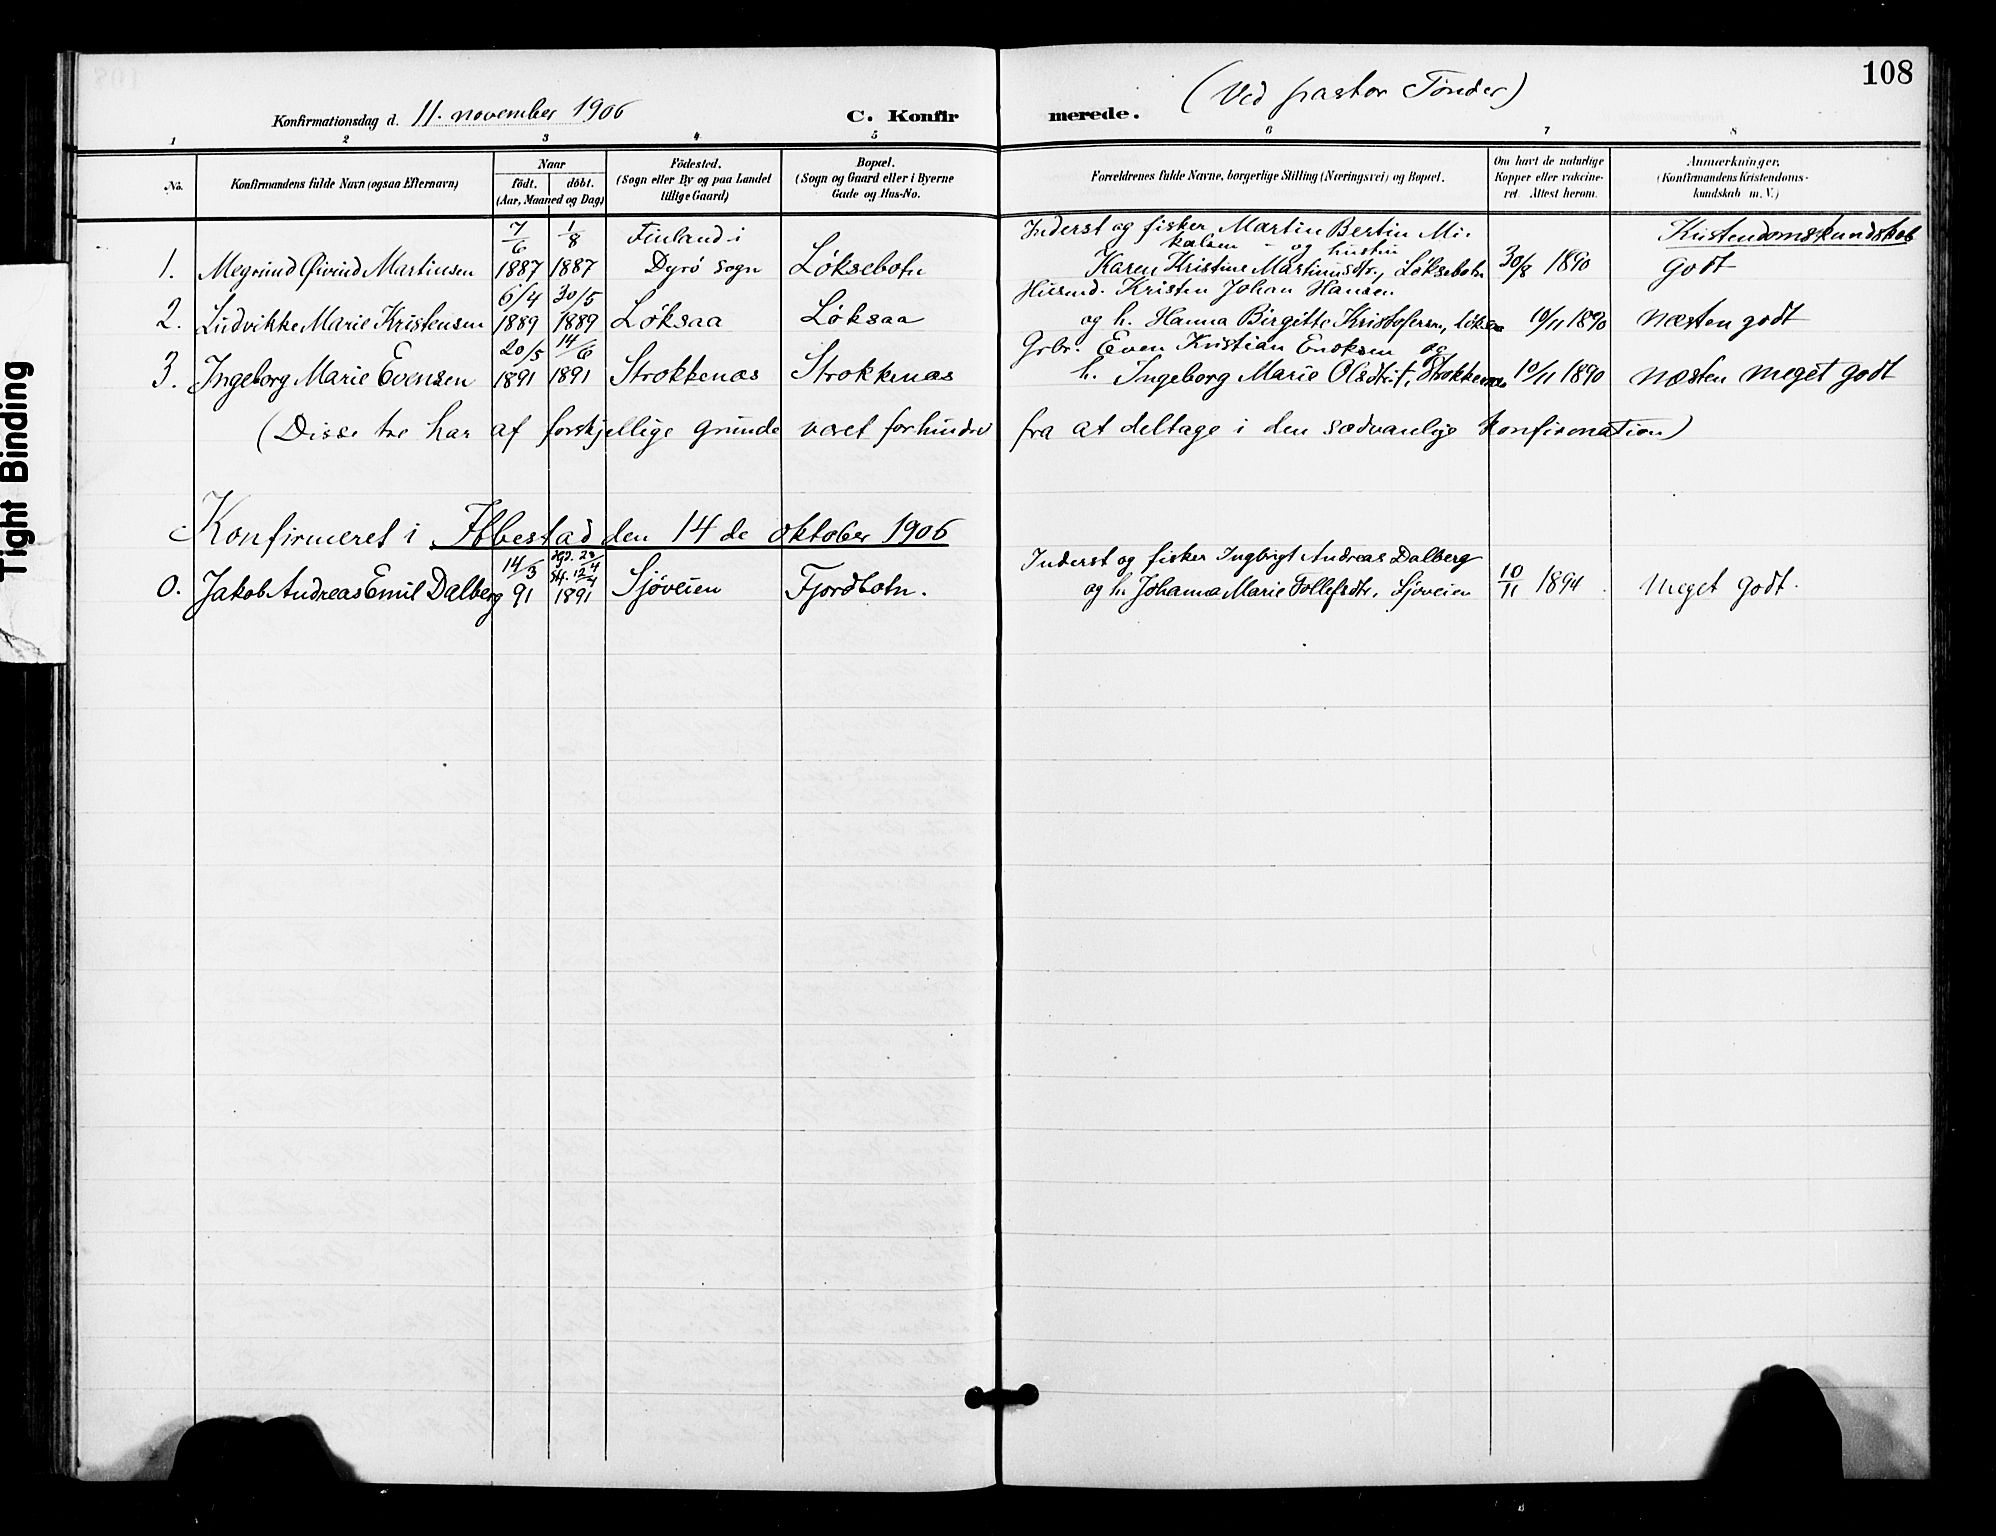 108
(Ved pastor Tönder)
Konfirmationsdag d. 11. november 1906
C. Konfirmerede.
1 2 3 4 5 6 7 8
No.
Konfirmandens fulde Navn (ogsaa Efternavn)
Naar
födt. döbt.
(Aar, Maaned og Dag)
Födested.
(Sogn eller By og paa Landet
tillige Gaard)
Bopæl.
(Sogn og Gaard eller i Byerne
Gade og Hus-No.
Forældrenes fulde Navne, borgerlige Stilling (Næringsvei) og Bopæl.
Om havt de naturlige
Kopper eller vakcine-
ret. Attest herom.
Anmærkninger.
(Konfirmandens Kristendoms-
kundskab m. V.)
7/6 1/8 Finland i Inderst og fisker Martin Bertin Mi- Kristendomskundskab
kalsen og hustru
1. Megrund Øivind Martinsen 1887 1887 Dyrö sogn Löksebotn Karen Kristine Martinusdtr., Löksebotn 30/8 1890 godt
6/4 30/5 Husmd. Kristen Johan Hansen
2. Ludvikke Marie Kristensen 1889 1889 Löksaa Löksaa og h. Hanna Birgitte Kristofersen, Löksaa 10/11 1890 næsten godt
20/5 14/6 Grbr. Even Kristian Enoksen og
3. Ingeborg Marie Evensen 1891 1891 Strokkenæs Strokkenæs h. Ingeborg Marie Olsdtr., Strokkenæs 10/11 1890 næsten meget godt
(Disse tre har af forskjellige grunde været forhindret fra at deltage i den sædvanlige konfirmation)
Konfirmeret i Ibbestad den 14 de oktober 1906
14/3 23/4 Inderst og fisker Ingbrigt Andreas Dalberg
12/4
0. Jakob Andreas Emil Dalberg 91 1891 Sjöveien Fjordbotn. og h. Johanna Marie Tollefsdtr. Sjöveien 10/11 1894. Meget godt.
Tight Binding